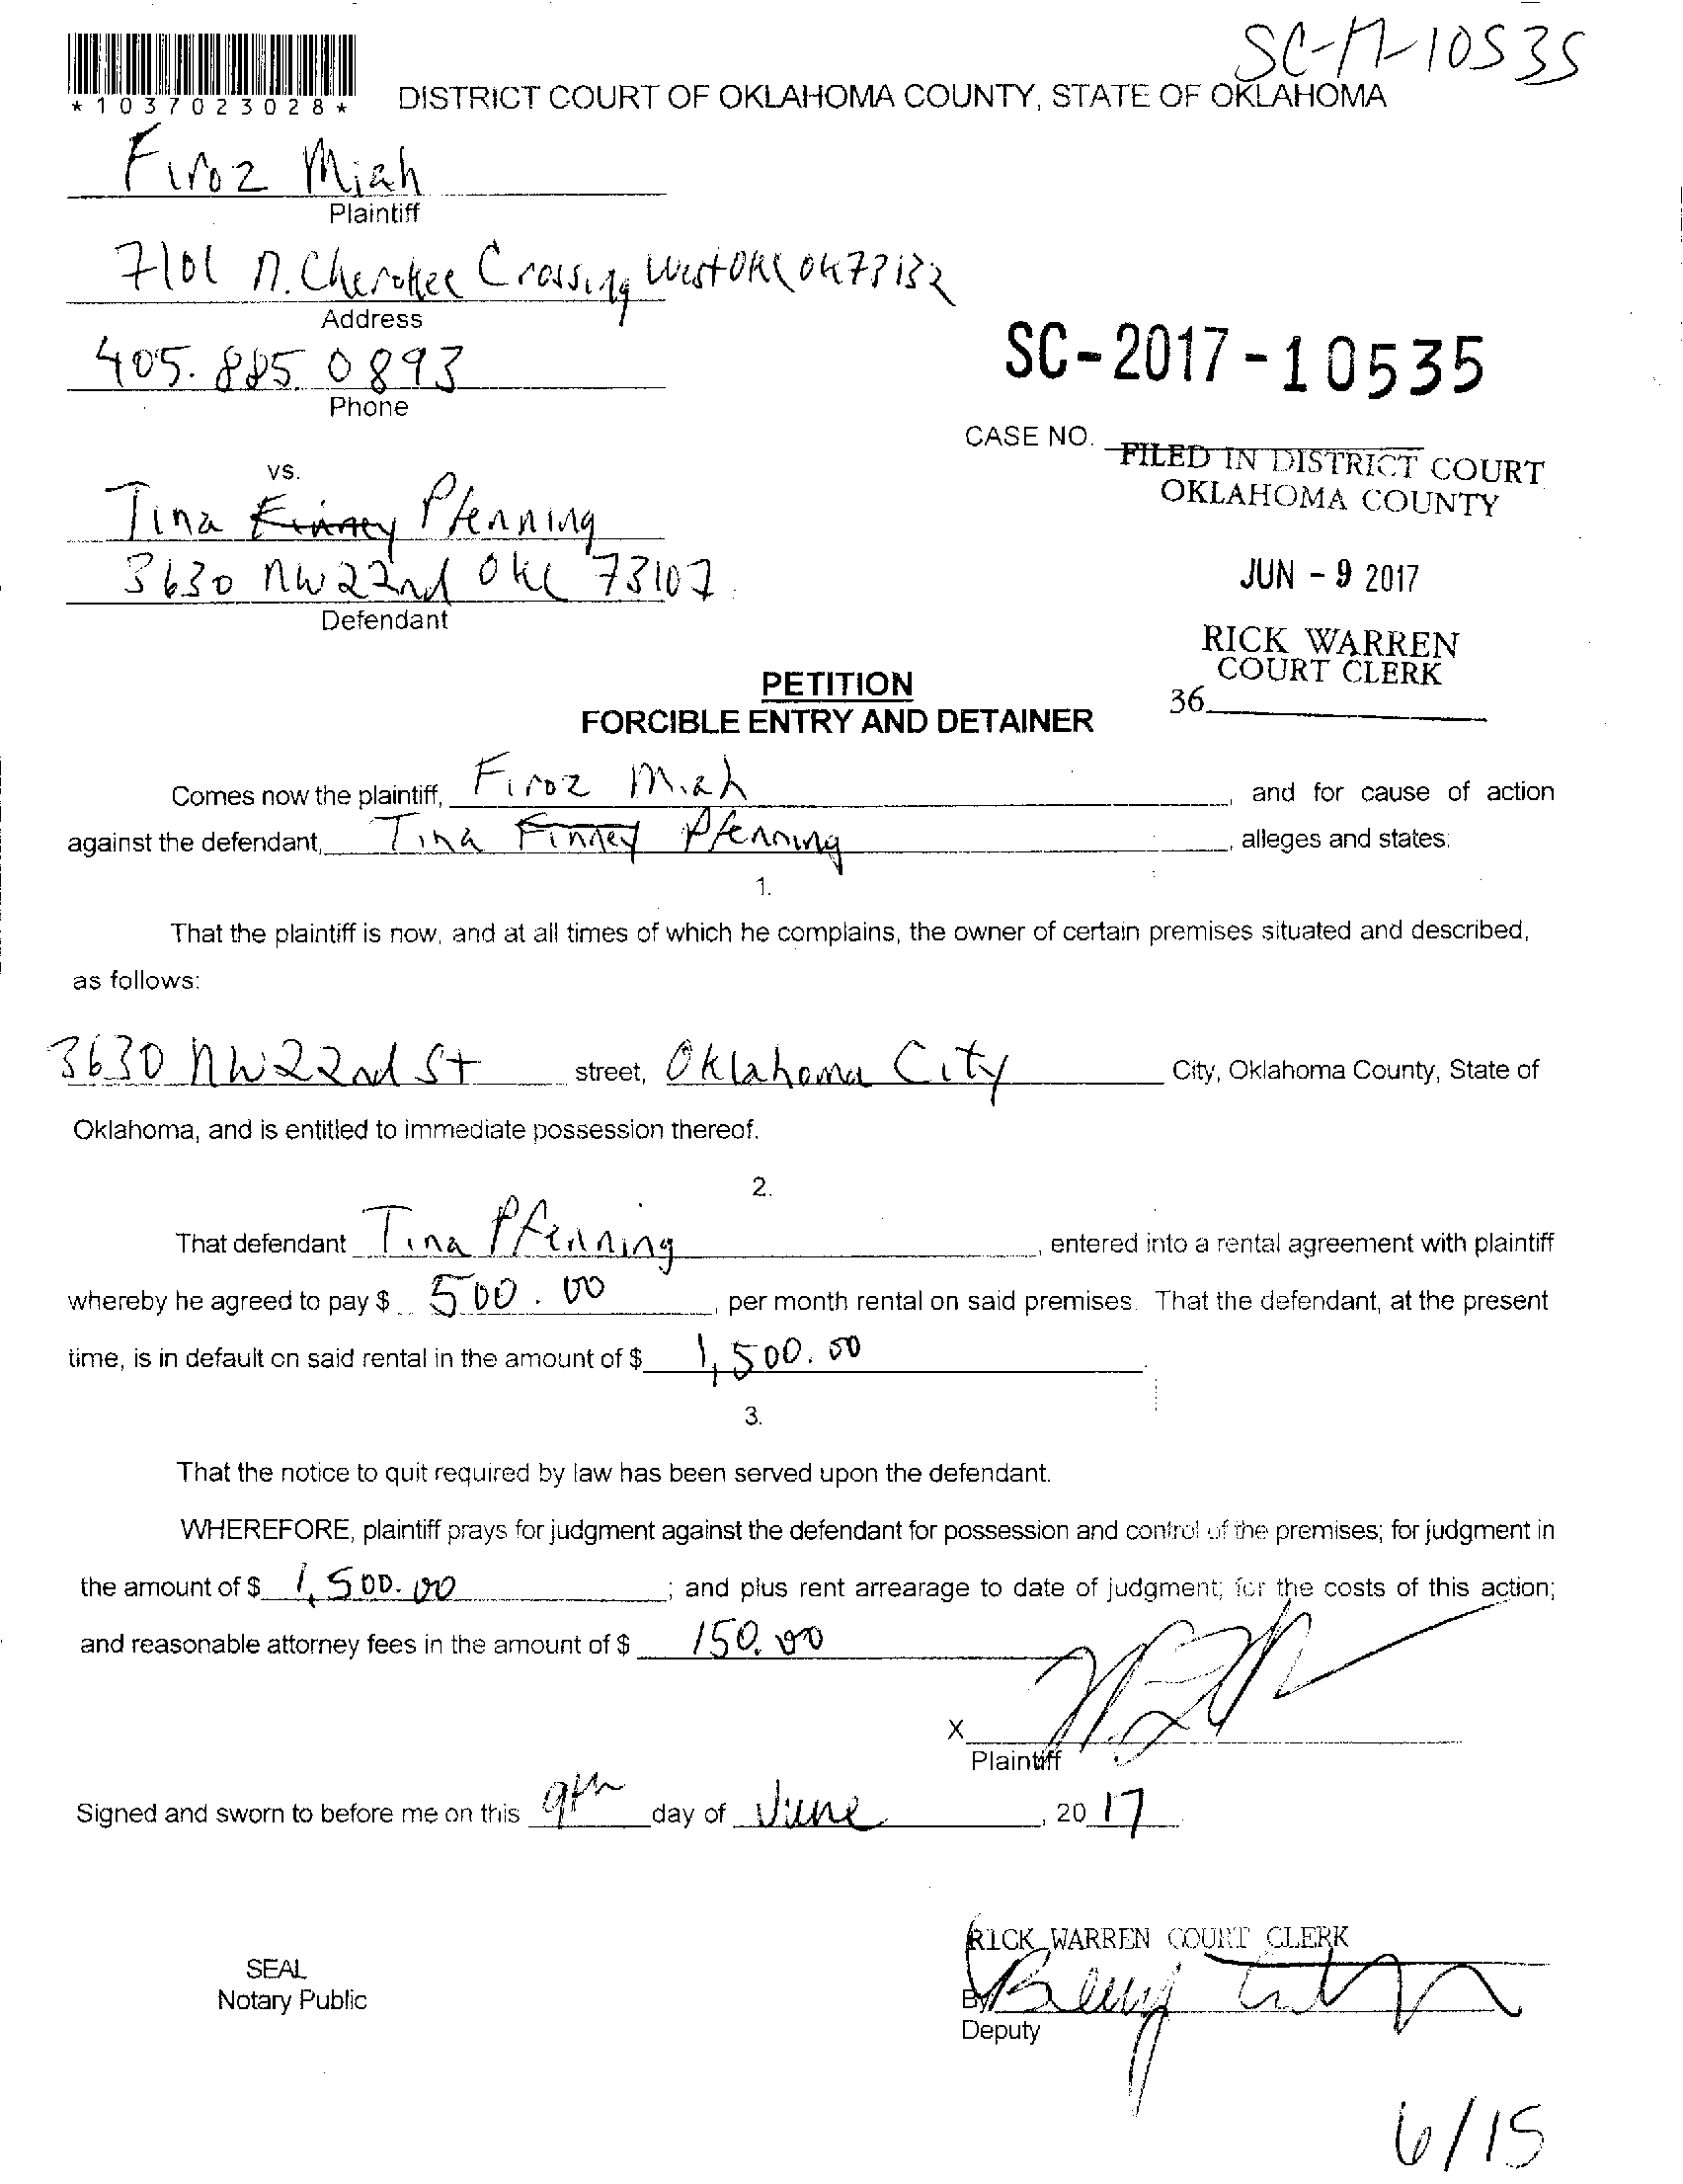 SC-17-10535
*1037023028*
DISTRICT COURT OF OKLAHOMA COUNTY, STATE OF OKLAHOMA
Firoz Miah
Plaintiff
7101 N. Cherokee Crossing West OKC OK 73132
Address
405. 885. 0893
Phone
SC-2017-10535
CASE NO.
FILED IN DISTRICT COURT
OKLAHOMA COUNTY
vs.
Tina Finney Pfenning
3630 NW 22nd OKC 73107
Defendant
JUN - 9 2017
RICK WARREN
COURT CLERK
36
PETITION
FORCIBLE ENTRY AND DETAINER
Comes now the plaintiff, Firoz Miah, and for cause of action
against the defendant, Tina Finney Pfenning, alleges and states:
1.
That the plaintiff is now, and at all times of which he complains, the owner of certain premises situated and described,
as follows:
3630 NW 22nd St street, Oklahoma City City, Oklahoma County, State of
Oklahoma, and is entitled to immediate possession thereof.
2.
That defendant Tina Pfenning, entered into a rental agreement with plaintiff
whereby he agreed to pay $ 500.00, per month rental on said premises. That the defendant, at the present
time, is in default on said rental in the amount of $ 1,500.00.
3.
That the notice to quit required by law has been served upon the defendant.
WHEREFORE, plaintiff prays for judgment against the defendant for possession and control of the premises; for judgment in
the amount of $ 1,500.00; and plus rent arrearage to date of judgment; for the costs of this action;
and reasonable attorney fees in the amount of $ 150.00
X
Plaintiff
Signed and sworn to before me on this 9th day of June, 20 17
RICK WARREN COURT CLERK
SEAL
Notary Public
By
Deputy
6/15